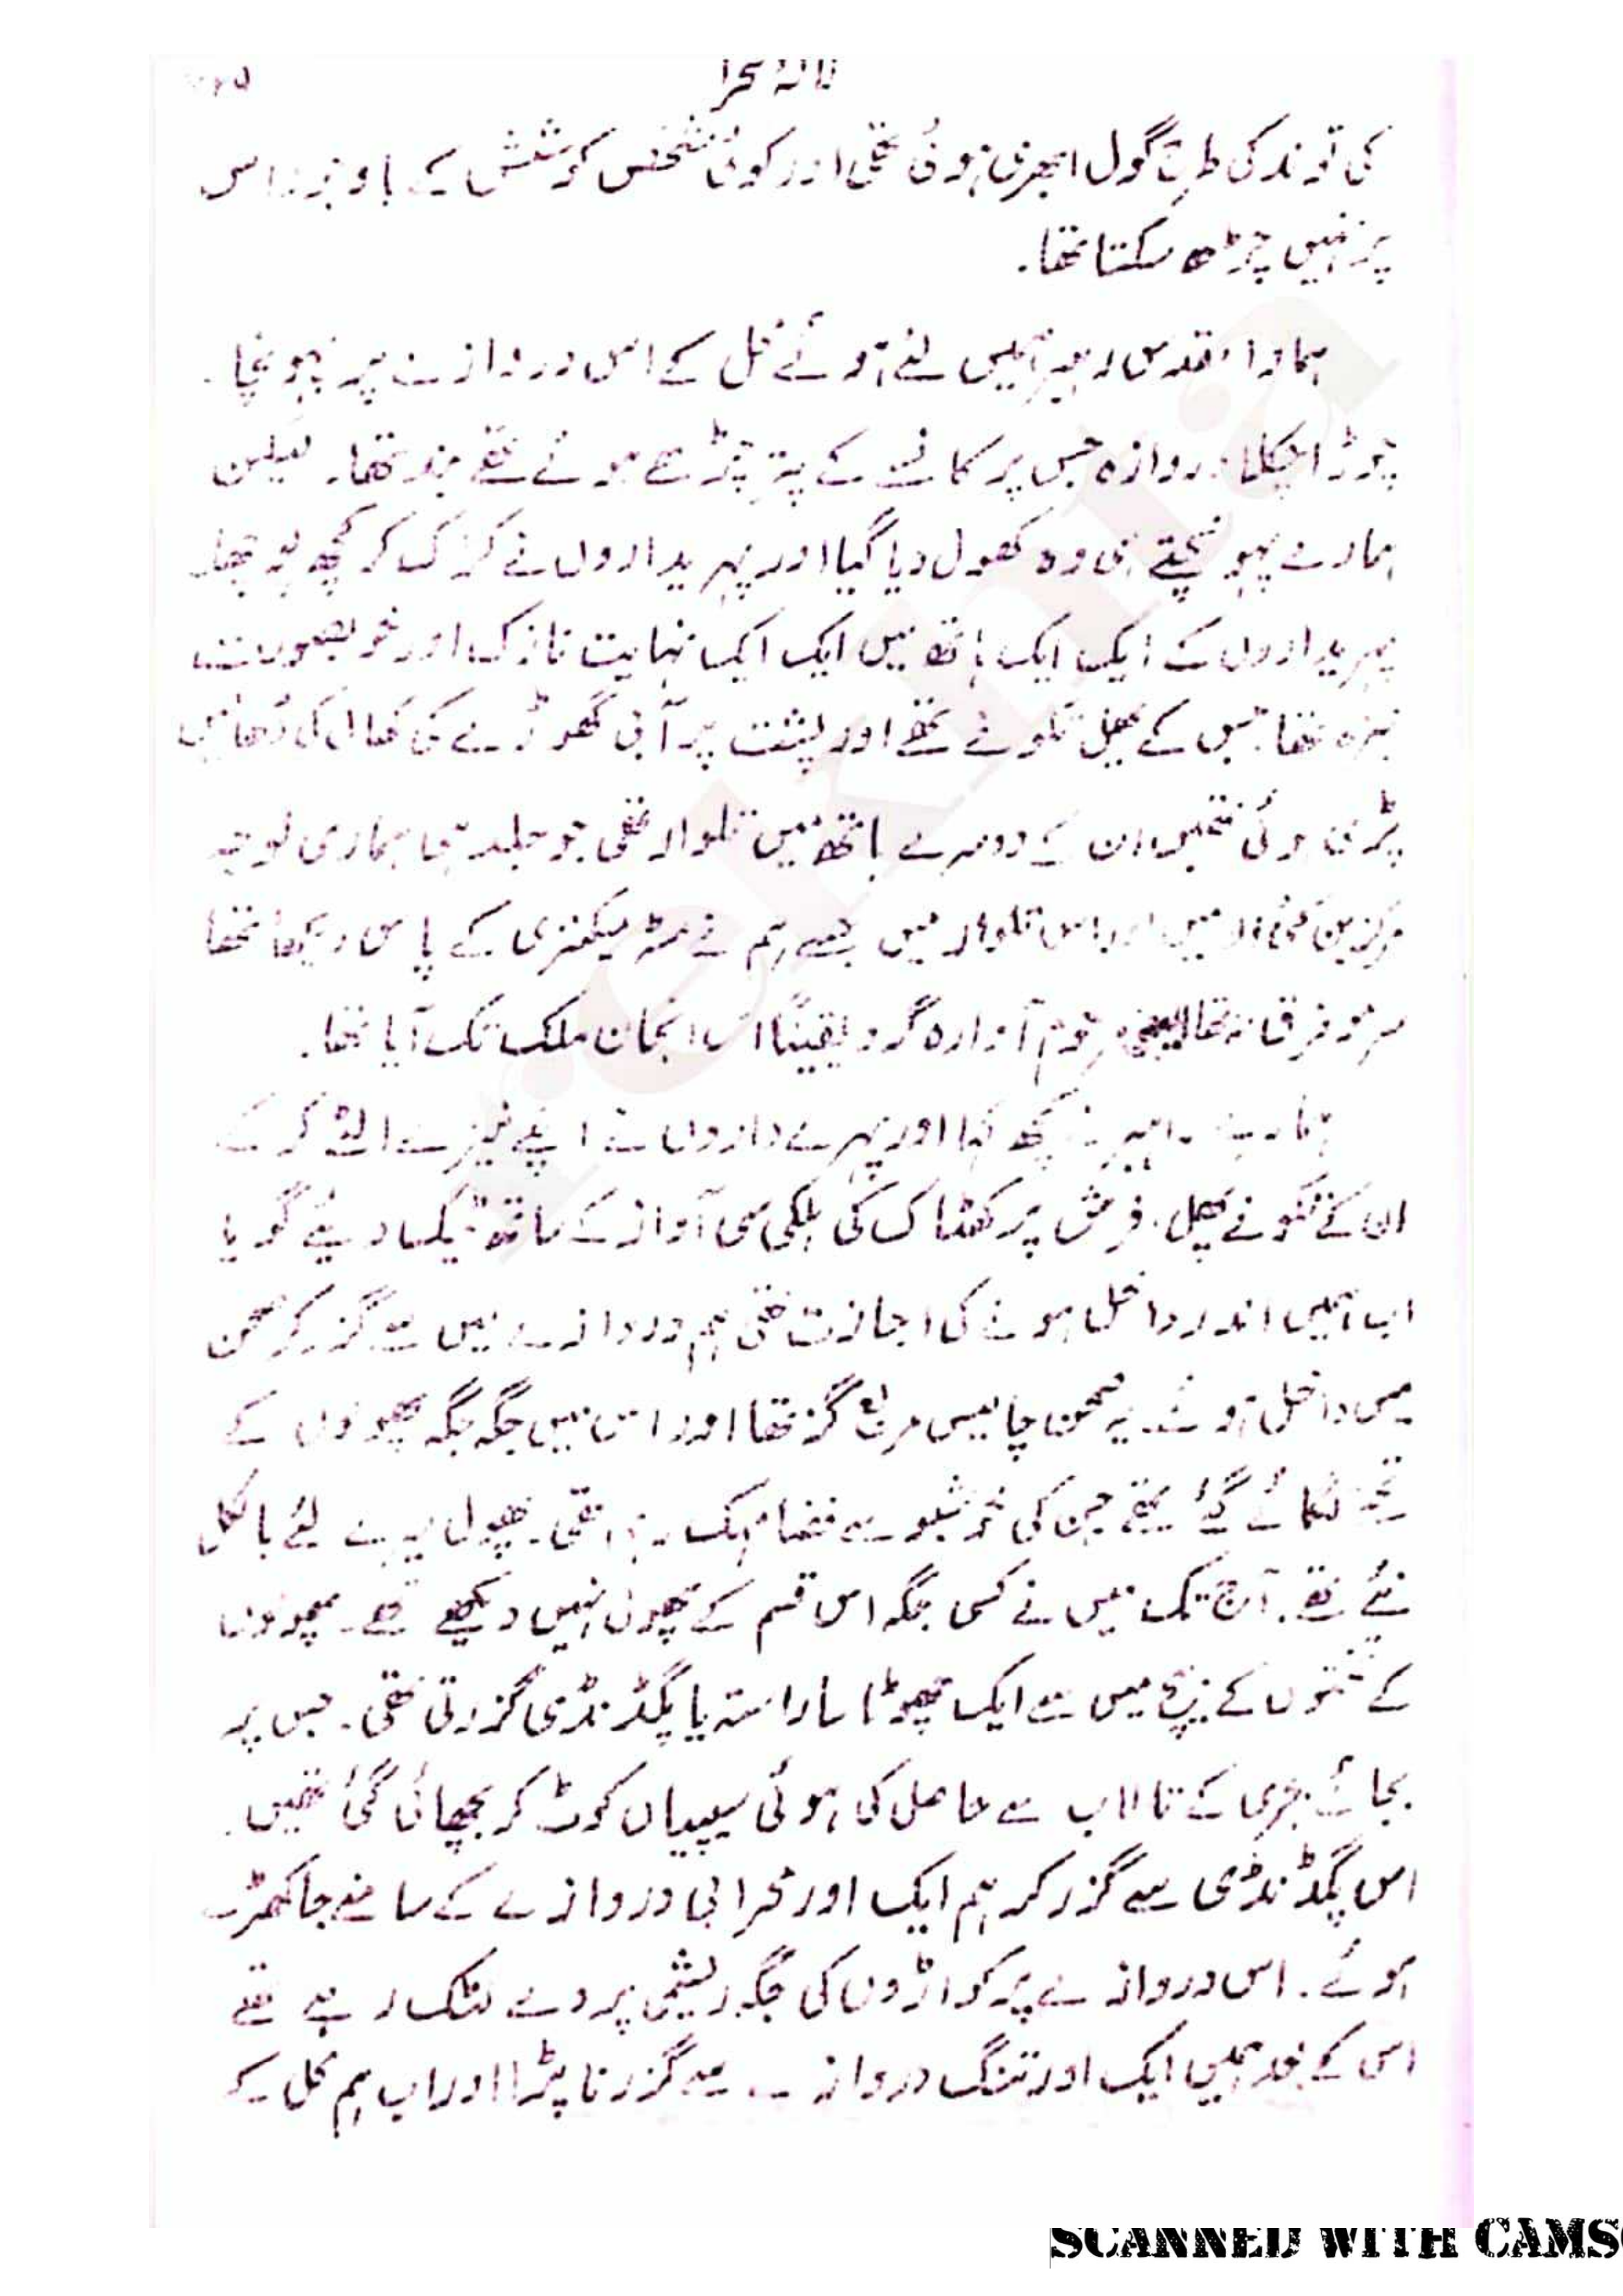 نالۂ صحرا
کی توند کی طرح گول ابھری ہوئی تھی اور کوئی شخص کوشش کے باوجود اس
پر نہیں چڑھ سکتا تھا۔
ہمارا مقدس رہبر ہمیں لئے ہوئے محل کے اس دروازے پر پہونچا۔
چوڑا چکلا دروازہ جس پر کانسے کے پتر چڑھے ہوئے تھے بند تھا۔ لیکن
ہمارے پہونچتے ہی وہ کھول دیا گیا اور پہریداروں نے کڑک کر کچھ پوچھا۔
پہریداروں کے ایک ایک ہاتھ میں ایک ایک نہایت نازک اور خوبصورت
نیزہ تھا جس کے پھل تکونے تھے اور پشت پر آبی گھوڑے کی کھال کی ڈھالیں
پڑی ہوئی تھیں، ان کے دوسرے ہاتھ میں تلوار تھی جو جلد ہی ہماری توجہ
مرکز بن گئی، ان میں اور اس تلوار میں جسے ہم نے مسٹر میکنزی کے پاس دیکھا تھا
سرمو فرق نہ تھا یعنی مرحوم آوارہ گرد یقیناً اس انجان ملک تک آیا تھا۔
ہمارے رہبر نے کچھ کہا اور پہرے داروں نے اپنے نیزے الٹے کر کے
ان کے تکونے پھل، فرش پر کھٹاک کی ہلکی سی آواز کے ساتھ ٹیک دیئے گویا
اب ہمیں اندر داخل ہونے کی اجازت تھی ہم دروازے میں سے گزر کر صحن
میں داخل ہوئے۔ یہ صحن چالیس مربع گز تھا اور اس میں جگہ جگہ پھولوں کے
تختے لگائے گئے تھے جن کی خوشبو سے فضا مہک رہی تھی۔ پھول میرے لئے بالکل
نئے تھے۔ آج تک میں نے کسی جگہ اس قسم کے پھول نہیں دیکھے تھے۔ پھولوں
کے تختوں کے بیچ میں سے ایک چھوٹا سا راستہ یا پگڈنڈی گزرتی تھی۔ جس پر
بجائے بجری کے تالاب سے حاصل کی ہوئی سیپیاں کوٹ کر بچھائی گئی تھیں۔
اس پگڈنڈی سے گزر کر ہم ایک اور محرابی دروازے کے سامنے جا کھڑے
ہوئے۔ اس دروازے پر کواڑوں کی جگہ ریشمی پردے لٹک رہے تھے
اس کے بعد ہمیں ایک اور تنگ دروازے سے گزرنا پڑا اور اب ہم محل کے
SCANNED WITH CAMS